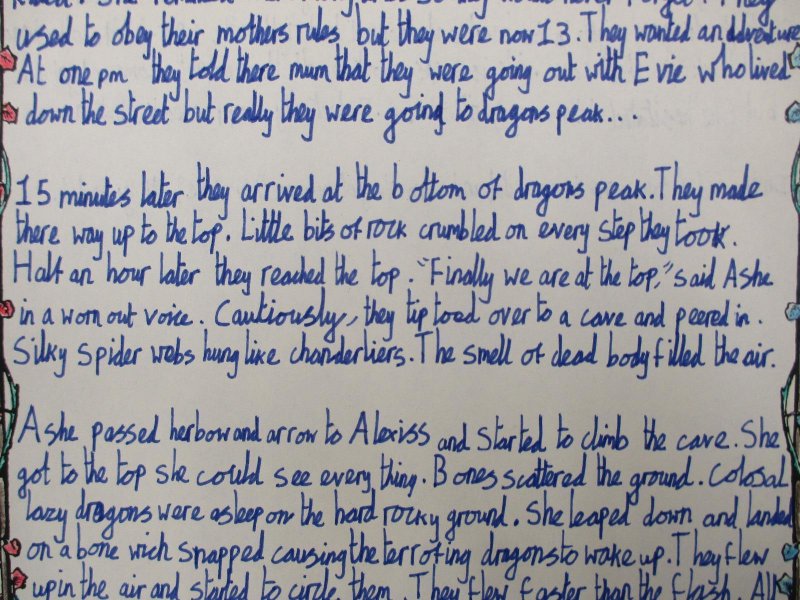 used to obey their mothers rules but they were now 13. They wanted an addventure
At one pm they told there mum that they were going out with Evie who lived
down the street but really they were going to dragons peak...
15 minutes later they arrived at the bottom of dragons peak. They made
there way up to the top. Little bits of rock crumbled on every step they took.
Half an hour later they reached the top. "Finally we are at the top," said Ashe
in a worn out voice. Cautiously, they tip toed over to a cave and peered in.
Silky spider webs hung like chanderliers. The smell of dead body filled the air.
Ashe passed her bow and arrow to Alexiss and started to climb the cave. She
got to the top she could see every thing. Bones scattered the ground. Colosal
lazy dragons were asleep on the hard rocky ground. She leaped down and landed
on a bone wich snapped causing the terrofing dragons to wake up. They flew
up in the air and started to circle them. They flew faster than the flash. All